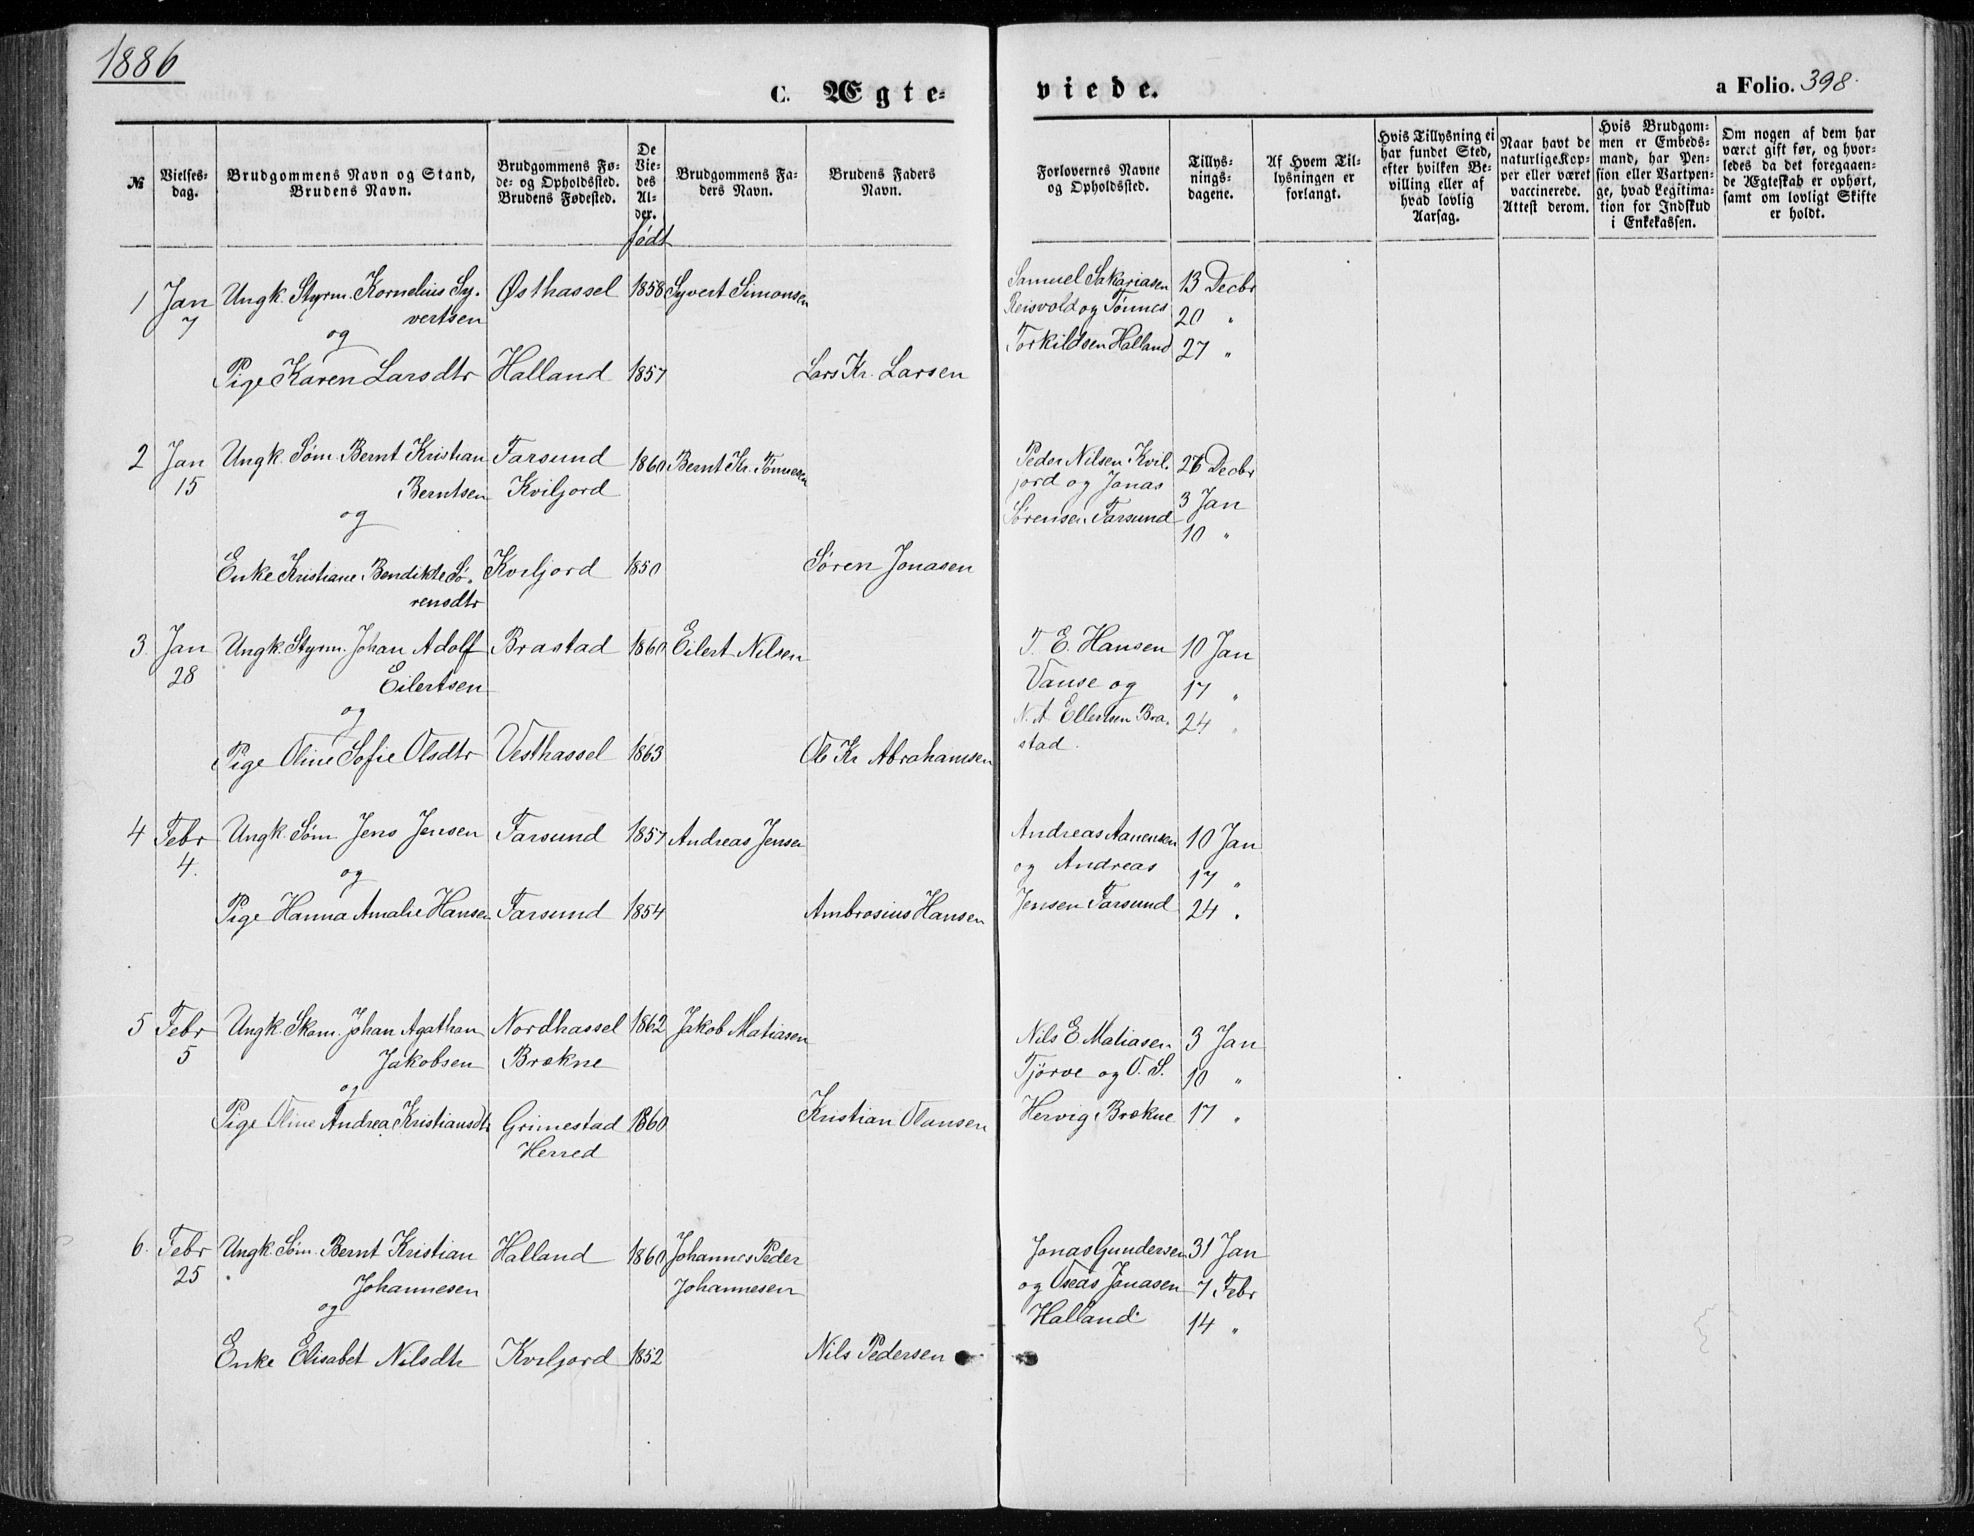 1886
C. Ægte-
viede.
a Folio. 398.
№
Vielses-
dag.
Brudgommens Navn og Stand,
Brudens Navn.
Brudgommens Fø-
de- og Opholdssted.
Brudens Fødested.
De
Vie-
des
Al-
der.
født
Brudgommens Fa-
ders Navn.
Brudens Faders
Navn.
Forlovernes Navne
og Opholdssted.
Tillys-
nings-
dagene.
Af Hvem Til-
lysningen er
forlangt.
Hvis Tillysning ei
har fundet Sted,
efter hvilken Be-
villing eller af
hvad lovlig
Aarsag.
Naar havt de
naturlige Kop-
per eller været
vaccinerede.
Attest derom.
Hvis Brudgom-
men er Embeds-
mand, har Pen-
sion eller Vartpen-
ge, hvad Legitima-
tion for Indskud
i Enkekassen.
Om nogen af dem har
været gift før, og hvor-
ledes da det foregaaen-
de Ægteskab er ophørt,
samt om lovligt Skifte
er holdt.
1 Jan Ungk. Styrm. Kornelius Sy- Østhassel 1858 Syvert Simonsen Samuel Sakariasen 13 Decbr
7 vertsen Reisvold og Tønnes 20 "
og Torkildsen Halland 27 "
Pige Karen Larsdtr Halland 1857 Lars Kr. Larsen
2 Jan Ungk. Søm. Bernt Kristian Farsund 1860 Bernt Kr. Tønnesen Peder Nilsen Kvil- 26 Decbr
15 Berntsen Kviljord jord og Jonas 3 Jan
og Sørensen Farsund 10 "
Enke Kristiane Bendikte Sø- Kviljord 1850 Søren Jonasen
rensdtr
3. Jan Ungk. Styrm. Johan Adolf Brastad 1860 Eilert Nilsen T. E. Hansen 10 Jan
28 Eilertsen Vanse og 17 "
og N. A. Ellertsen Bra- 24 "
Pige Oline Sofie Olsdtr Vesthassel 1863 Ole Kr Abrahamsen stad.
4 Febr Ungk. Søm. Jens Jensen Farsund 1857 Andreas Jensen Andreas Aanensen 10 Jan
4. og og Andreas 17 "
Pige Hanna Amalie Hansen Farsund 1854 Ambrosius Hansen Jensen Farsund 24 "
5 Febr Ungk. Skom. Johan Agathan Nordhassel 1862 Jakob Matiasen Nils E Matiasen 3 Jan
5 Jakobsen Brekne Tjørve og O. S. 10 "
og
Pige Oline Andrea Kristiansdtr Grimestad 1860 Kristian Olausen Hervig Brekne 17 "
Herred
6. Febr Ungk. Søm. Bernt Kristian Halland 1860 Johannes Peder Jonas Gundersen 31 Jan
25 Johannesen Johannesen og Oseas Jonasen 7 Febr
og Halland 14 "
Enke Elisabet Nilsdtr Kviljord 1852 Nils Pedersen